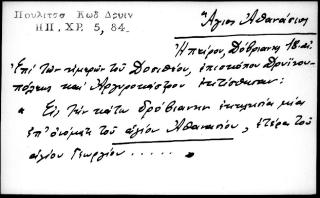 Πουλιτσα Κωδ Δρυιν
ΗΠ. ΧΡ. 5, 84.
Ἅγιος Ἀθανάσιος
Ἤπειρος, Δόβριανη, 18 αἰ.
Ἐπί τῶν ἡμερῶν τοῦ Δοσιθέου, ἐπισκόπου Δρυϊνου-
πόλεως καί Ἀργυροκάστρου ἐκτίσθησαν:
" Εἰς τήν κάτω δρόβιανην ἐκκλησία μία
ἐπ' ὀνόματι τοῦ ἁγίου Ἀθανασίου, ἑτέρα τοῦ
ἁγίου Γεωργίου ..... "